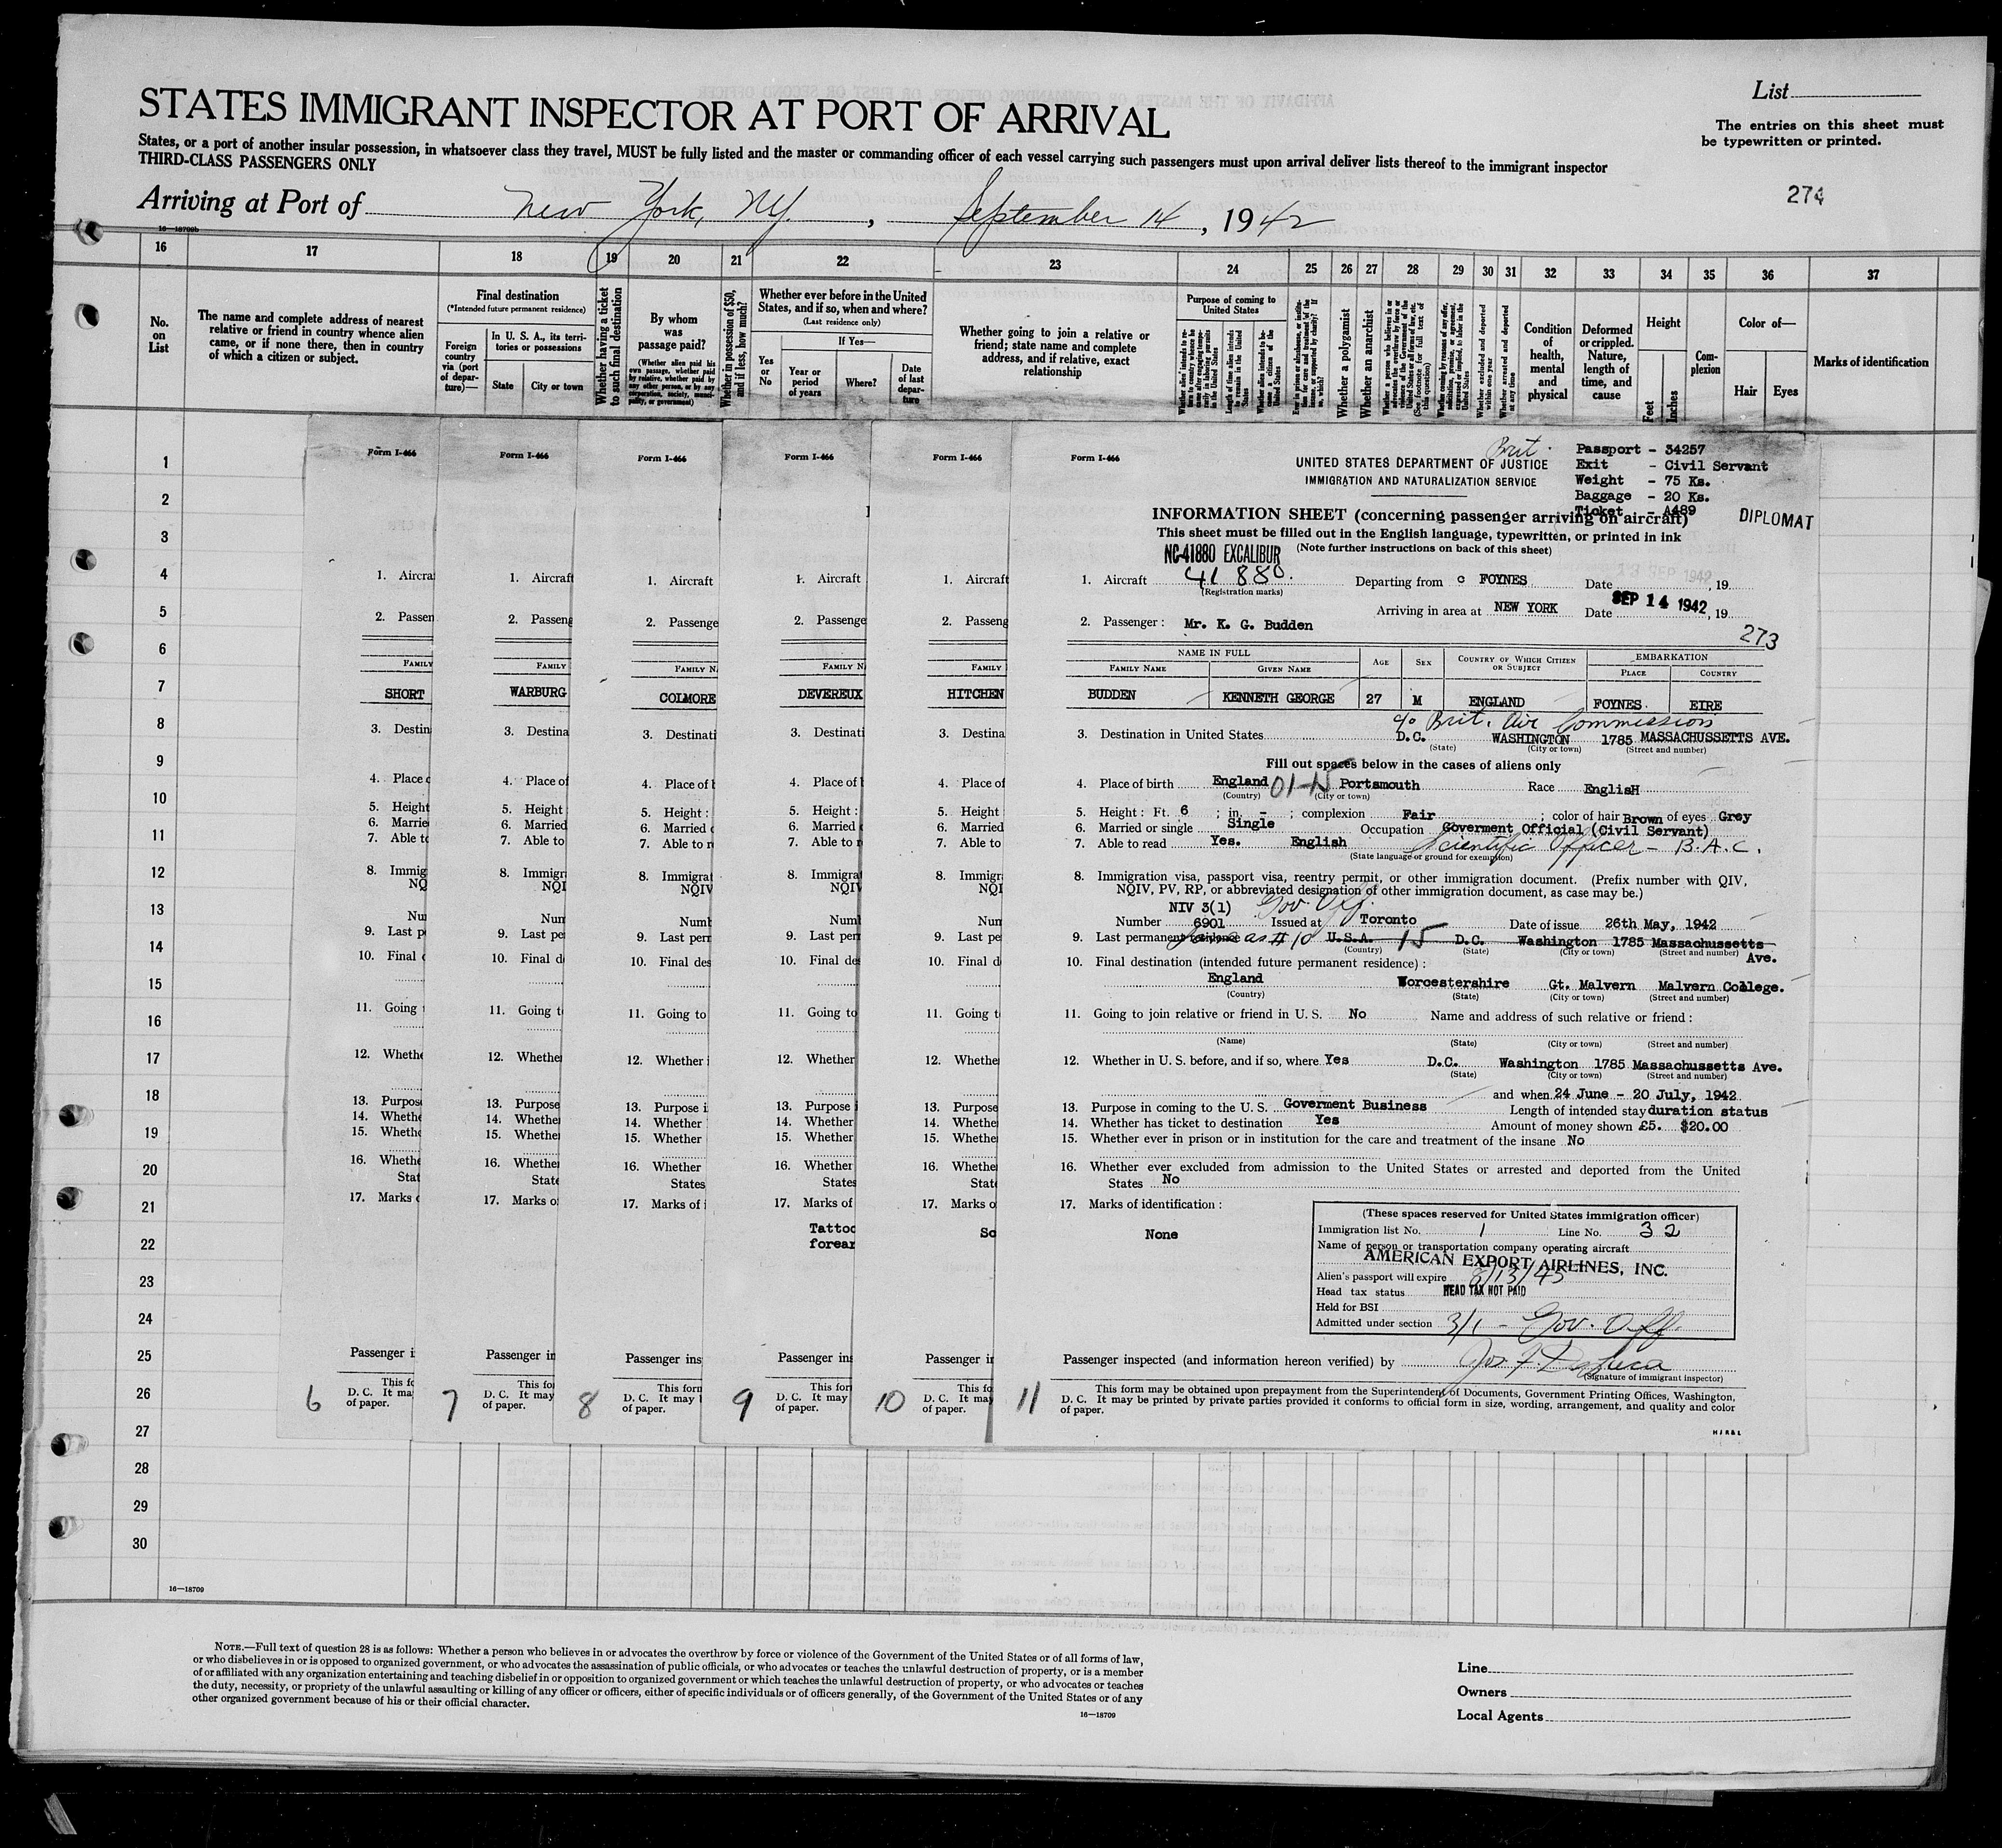 STATES IMMIGRANT INSPECTOR AT PORT OF ARRIVAL
List
The entries on this sheet must
be typewritten or printed.
States, or a port of another insular possession, in whatsoever class they travel, MUST be fully listed and the master or commanding officer of each vessel carrying such passengers must upon arrival deliver lists thereof to the immigrant inspector
THIRD-CLASS PASSENGERS ONLY
274
Arriving at Port of New York, NY. , September 14, 1942
16—18709b
16 17 18 19 20 21 22 23 24 25 26 27 28 29 30 31 32 33 34 35 36 37
No. on List
The name and complete address of nearest relative or friend in country whence alien came, or if none there, then in country of which a citizen or subject.
Final destination
(*Intended future permanent residence)
Foreign country via (port of departure)—
In U. S. A., its territories or possessions
State
City or town
Whether having a ticket to such final destination
By whom was passage paid?
(Whether alien paid his own passage, whether paid by relative, whether paid by any other person, or by any corporation, society, municipality, or government)
Whether in possession of $50, and if less, how much?
Whether ever before in the United States, and if so, when and where?
(Last residence only)
Yes or No
If Yes—
Year or period of years
Where?
Date of last departure
Whether going to join a relative or friend; state name and complete address, and if relative, exact relationship
Purpose of coming to United States
Length of time alien intends to remain in the United States
Whether alien intends to become a citizen of the United States
Whether a polygamist
Whether an anarchist
Whether excluded and deported within one year
Whether arrested and deported at any time
Condition of health, mental and physical
Deformed or crippled. Nature, length of time, and cause
Height
Feet
Inches
Complexion
Color of—
Hair
Eyes
Marks of identification
1
2
3
4
5
6
7
8
9
10
11
12
13
14
15
16
17
18
19
20
21
22
23
24
25
26
27
28
29
30
Form I-466
1. Aircra
2. Passen
FAMILY
SHORT
3. Destin
4. Place o
5. Height
6. Marrie
7. Able to
8. Immig
NQ
Nu
9. Last p
10. Final
11. Going
12. Whethe
13. Purpos
14. Whethe
15. Whethe
16. Whethe
Stat
17. Marks
Passenger i
This fo
D. C. It ma
of paper.
6
Form I-466
1. Aircraft
2. Passeng
FAMILY
WARBURG
3. Destina
4. Place of
5. Height
6. Married
7. Able to
8. Immigr
NQI
Num
9. Last pe
10. Final d
11. Going t
12. Whether
13. Purpose
14. Whethe
15. Whethe
16. Whether
State
17. Marks o
Passenger in
This for
D. C. It may
of paper.
7
Form I-466
1. Aircraft
2. Passenge
FAMILY N
COLMORE
3. Destinati
4. Place of b
5. Height :
6. Married
7. Able to r
8. Immigrat
NQIV
Numb
9. Last perm
10. Final des
11. Going to
12. Whether
13. Purpose i
14. Whether
15. Whether
16. Whether
States
17. Marks of i
Passenger ins
This form
D. C. It may
of paper.
8
Form I-466
1. Aircraft
2. Passenge
FAMILY N
DEVEREUX
3. Destinati
4. Place of b
5. Height :
6. Married
7. Able to r
8. Immigrat
NQIV
Numb
9. Last perm
10. Final des
11. Going to
12. Whether
13. Purpose
14. Whether
15. Whether
16. Whether
States
17. Marks of
Tattoo
forear
Passenger ins
This for
D. C. It may
of paper.
9
Form I-466
1. Aircraft
2. Passeng
FAMILY
HITCHEN
3. Destina
4. Place of
5. Height
6. Married
7. Able to
8. Immigr
NQI
Num
9. Last pe
10. Final d
11. Going t
12. Whethe
13. Purpose
14. Whethe
15. Whethe
16. Whethe
State
17. Marks o
Sc
Passenger in
This fo
D. C. It may
of paper.
10
Form I-466
Brit.
UNITED STATES DEPARTMENT OF JUSTICE
IMMIGRATION AND NATURALIZATION SERVICE
Passport - 34257
Exit - Civil Servant
Weight - 75 Ks.
Baggage - 20 Ks.
Ticket - A489
DIPLOMAT
INFORMATION SHEET (concerning passenger arriving on aircraft)
This sheet must be filled out in the English language, typewritten, or printed in ink
(Note further instructions on back of this sheet)
NC-41880 EXCALIBUR
1. Aircraft 41 880. Departing from c FOYNES Date 13 SEP 1942, 19
(Registration marks)
Arriving in area at NEW YORK Date SEP 14 1942, 19
2. Passenger : Mr. K. G. Budden
273
NAME IN FULL
FAMILY NAME GIVEN NAME AGE SEX COUNTRY OF WHICH CITIZEN OR SUBJECT EMBARKATION PLACE COUNTRY
BUDDEN KENNETH GEORGE 27 M ENGLAND FOYNES. EIRE
c/o Brit. Air Commission
3. Destination in United States D.C. WASHINGTON 1785 MASSACHUSSETTS AVE.
(State) (City or town) (Street and number)
Fill out spaces below in the cases of aliens only
4. Place of birth England 01-15 Portsmouth Race EnglisH
(Country) (City or town)
5. Height : Ft. 6 ; in. - ; complexion Fair ; color of hair Brown of eyes Grey
6. Married or single Single Occupation Goverment Official (Civil Servant)
7. Able to read Yes. English Scientific Officer - B.A.C.
(State language or ground for exemption)
8. Immigration visa, passport visa, reentry permit, or other immigration document. (Prefix number with QIV,
NQIV, PV, RP, or abbreviated designation of other immigration document, as case may be.)
NIV 3(1) Gov. Off.
Number 6901 Issued at Toronto Date of issue 26th May, 1942
9. Last permanent residence Same as #10 U.S.A. 15 D.C. Washington 1785 Massachussetts Ave.
(Country) (State) (City or town) (Street and number)
10. Final destination (intended future permanent residence) :
England Worcestershire Gt. Malvern Malvern College.
(Country) (State) (City or town) (Street and number)
11. Going to join relative or friend in U. S. No Name and address of such relative or friend :
(Name) (State) (City or town) (Street and number)
12. Whether in U. S. before, and if so, where Yes D.C. Washington 1785 Massachussetts Ave.
(State) (City or town) (Street and number)
and when 24 June - 20 July, 1942
13. Purpose in coming to the U. S. Goverment Business Length of intended stay duration status
14. Whether has ticket to destination Yes Amount of money shown £5. $20.00
15. Whether ever in prison or in institution for the care and treatment of the insane No
16. Whether ever excluded from admission to the United States or arrested and deported from the United
States No
17. Marks of identification :
None
(These spaces reserved for United States immigration officer)
Immigration list No. 1 Line No. 32
Name of person or transportation company operating aircraft
AMERICAN EXPORT AIRLINES, INC.
Alien's passport will expire 8/13/45
Head tax status HEAD TAX NOT PAID
Held for BSI
Admitted under section 3/1 - Gov. Off.
Passenger inspected (and information hereon verified) by Jos. F. DeLuca
(Signature of immigrant inspector)
This form may be obtained upon prepayment from the Superintendent of Documents, Government Printing Offices, Washington,
D. C. It may be printed by private parties provided it conforms to official form in size, wording, arrangement, and quality and color
of paper.
11
H J R & L
16—18709
NOTE.—Full text of question 28 is as follows: Whether a person who believes in or advocates the overthrow by force or violence of the Government of the United States or of all forms of law,
or who disbelieves in or is opposed to organized government, or who advocates the assassination of public officials, or who advocates or teaches the unlawful destruction of property, or is a member
of or affiliated with any organization entertaining and teaching disbelief in or opposition to organized government or which teaches the unlawful destruction of property, or who advocates or teaches
the duty, necessity, or propriety of the unlawful assaulting or killing of any officer or officers, either of specific individuals or of officers generally, of the Government of the United States or of any
other organized government because of his or their official character.
16—18709
Line
Owners
Local Agents